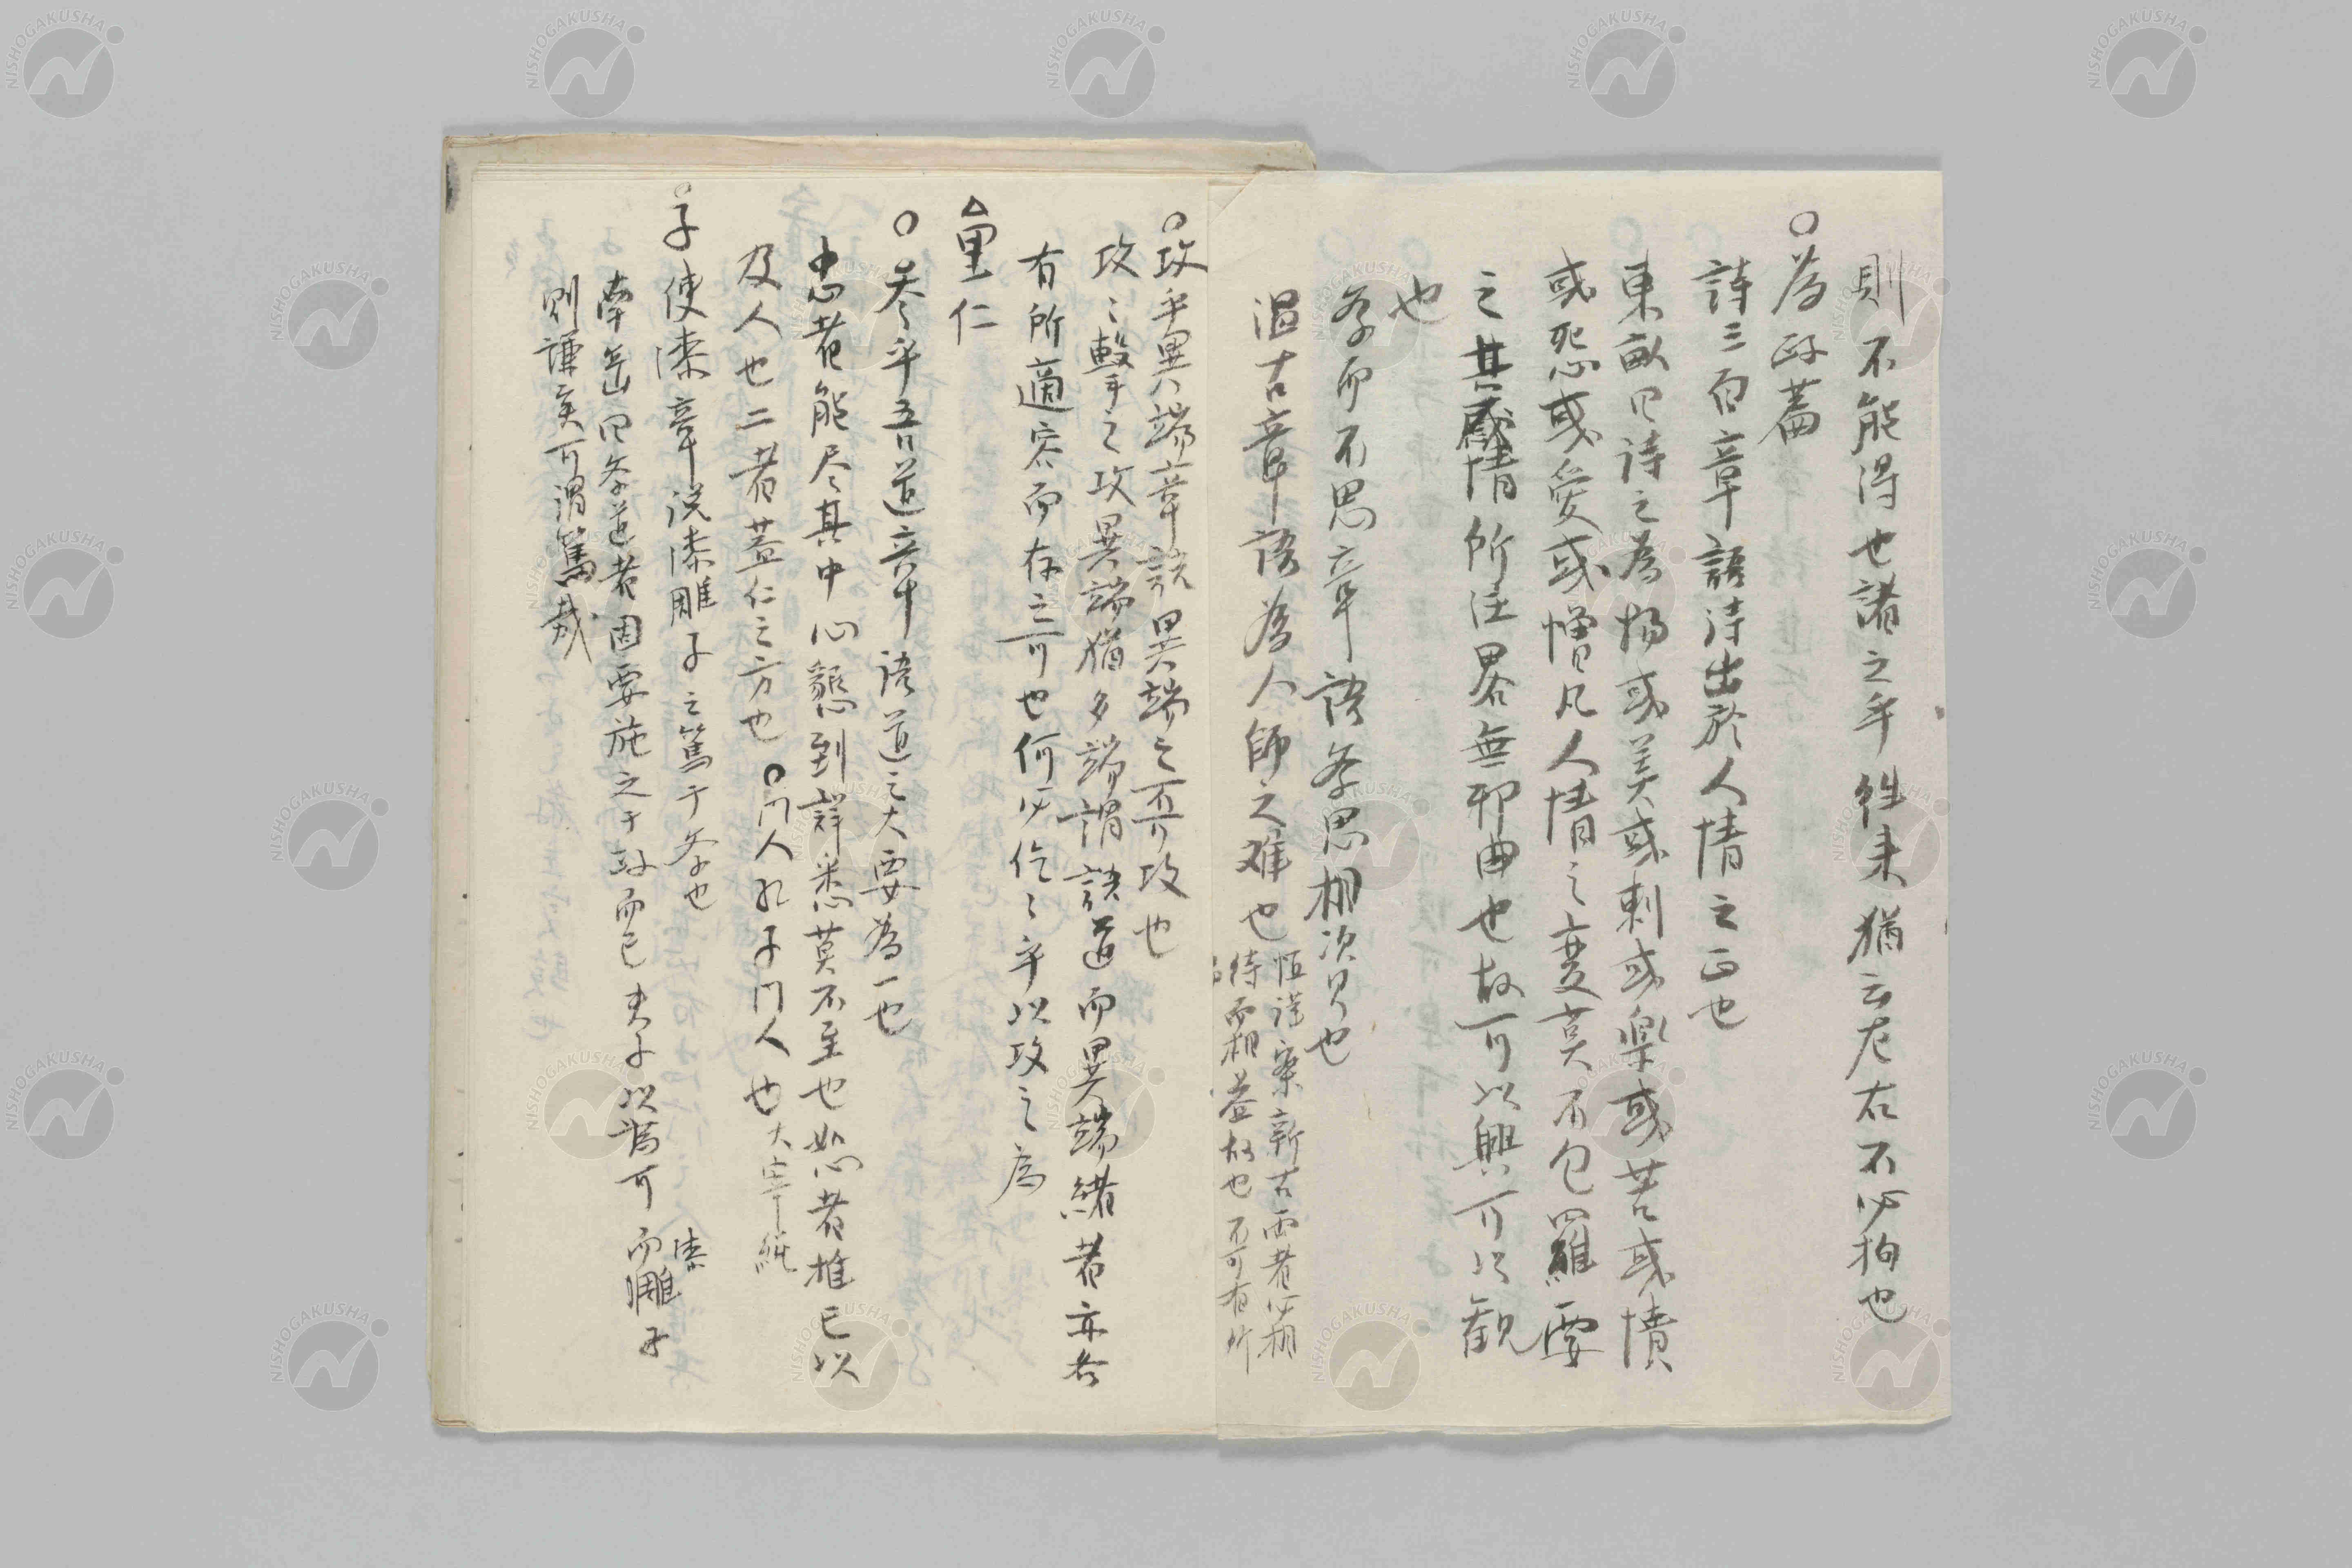 則不能得也諸之乎往来猶云左右不必拘也
○為政萹
詩三百章語詩出於人情之正也
東畝曰詩之為物或美或刺或楽或苦或憤
或怨或愛或憎凡人情之変莫不包羅要
之其感情所注畧無邪曲也故可以興可以観
也
学而不思章語学思相次只也
温古章語為人師之难也
恒謹案新古両者必相
待而相益故也不可有所
○攻乎異端章説異端之不可攻也
攻〻撃之攻異端猶多端謂説道而異端緒者亦各
有所適容而存之可也何必佗〻卒以攻之為
△里仁
○参乎吾道章語道之大要為一也
忠者能尽其中心懇到詳悉莫不至也恕者推己以
及人也二者蓋仁之方也○門人孔子門人也大宰純
○子使漆章説漆雕子之篤于学也
南岳曰学道者固要施之于政而已夫子以為可而漆雕子
則謙矣可謂篤哉
NISHOGAKUSHA